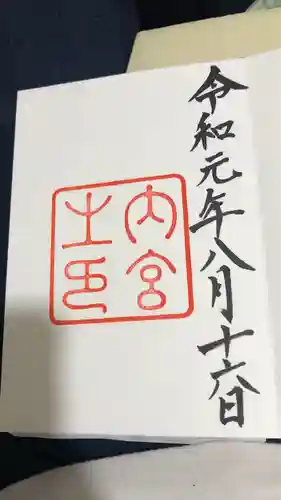 令和元年八月十六日
内宮
之印